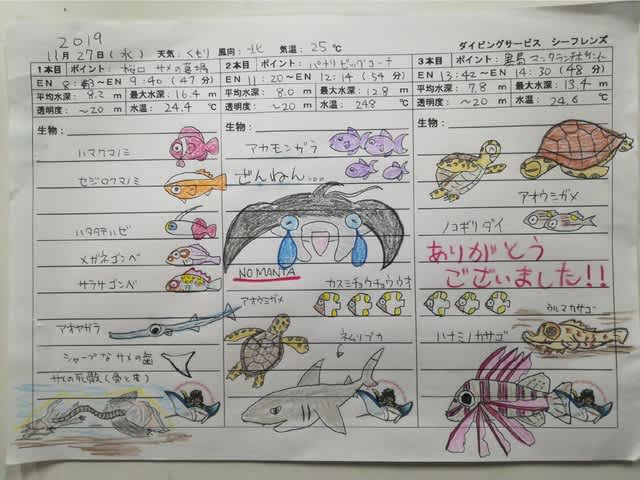 2019
11月27日(水) 天気:くもり 風向:北 気温:25℃ ダイビングサービス シーフレンズ
1本目 ポイント: サメの
EN 8: ~EN 9:40 (47分)
平均水深: 8.2 m 最大水深: 16.4 m
透明度: ~20 m 水温: 24.4 ℃
生物:
ハマクマノミ
セジロクマノミ
ハタタテハゼ
メガネゴンベ
サラサゴンベ
アオヤガラ
シャープなサメの歯
サメの死骸(骨と皮)
2本目 ポイント: パナリビッグコーナー
EN 11:20~EN 12:14 (54分)
平均水深: 8.0 m 最大水深: 12.8 m
透明度: ~20 m 水温: 248 ℃
生物:
アカモンガラ
ざんねん...
NO MANTA
カスミチョウチョウウオ
アオウミガメ
ネムリブカ
3本目 ポイント: 黒島
EN 13:42~EN 14:30 (48分)
平均水深: 7.8 m 最大水深: 13.4 m
透明度: ~20 m 水温: 24.6 ℃
生物:
アオウミガメ
ノコギリダイ
ありがとう
ございました!!
ウルマカサゴ
ハナミノカサゴ